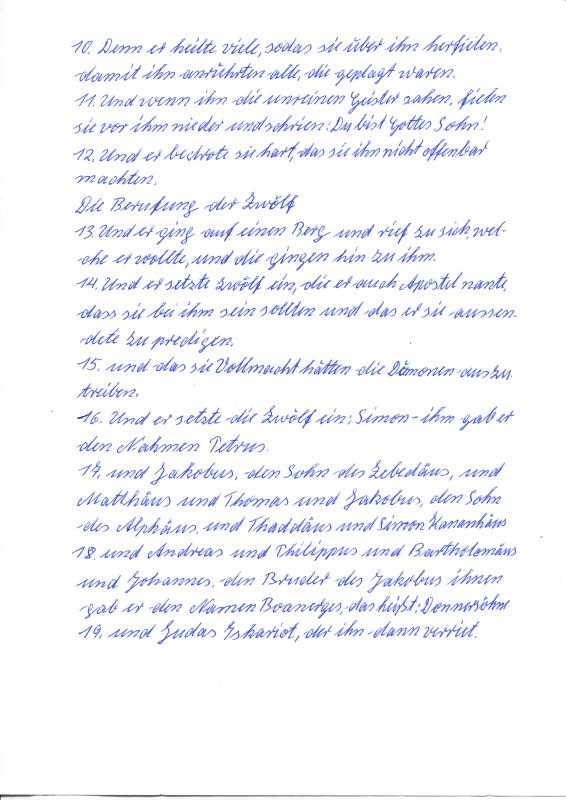 10. Denn er heilte viele, sodas sie über ihn herfielen,
damit ihn anrührten alle, die geplagt waren.
11. Und wenn ihn die unreinen Geister sahen, fielen
sie vor ihm nieder und schrien: Du bist Gottes Sohn!
12. Und er bedrote sie hart, das sie ihn nicht offenbar
machten.
Die Berufung der Zwölf
13. Und er ging auf einen Berg und rief zu sich, wel-
che er wollte, und die gingen hin zu ihm.
14. Und er setzte zwölf ein, die er auch Apostel nante,
dass sie bei ihm sein sollten und das er sie aussen-
dete zu predigen,
15. und das sie Vollmacht hätten die Dämonen auszu
treiben.
16. Und er setzte die Zwölf ein: Simon - ihm gab er
den Nahmen Petrus.
17. und Jakobus, den Sohn des Zebedäus, und
Matthäus und Thomas und Jakobus, den Sohn
des Alphäus, und Thaddäus und Simon Kananhäus
18. und Andreas und Philippus und Bartholomäus
und Johannes, den Bruder des Jakobus ihnen
gab er den Namen Boanerges, das heißt: Donnersöhne
19. und Judas Iskariot, der ihn dann verriet.